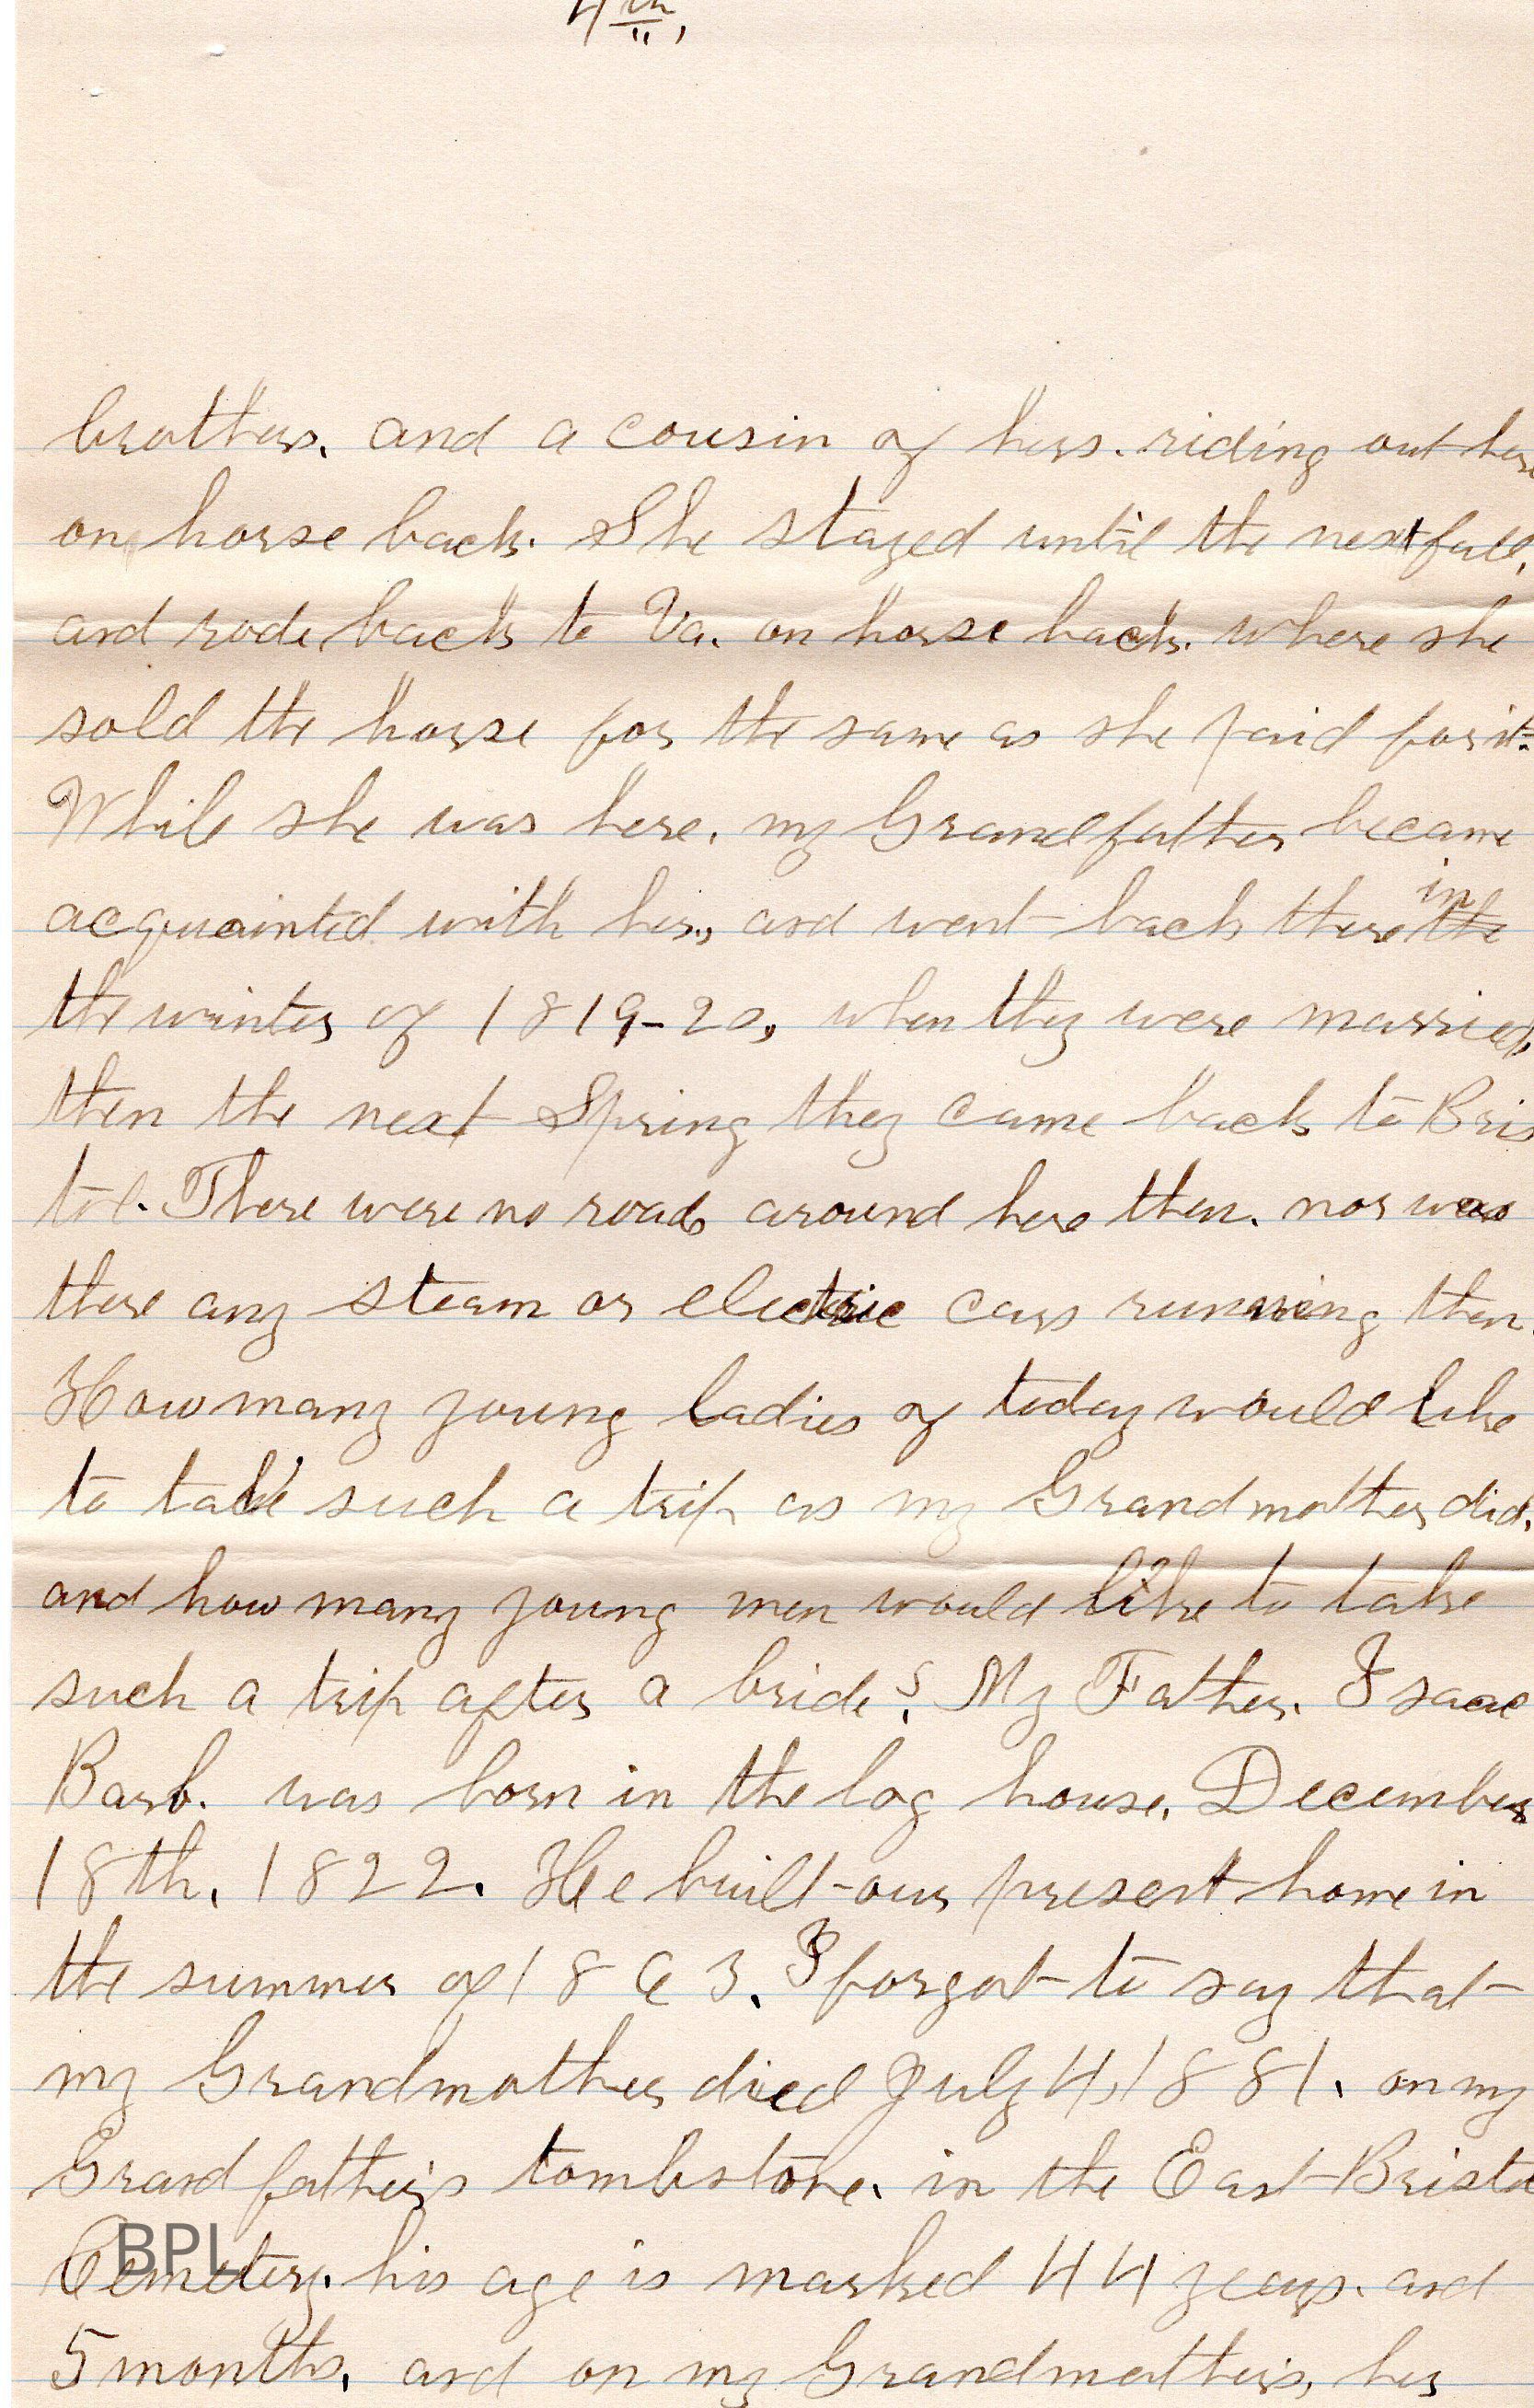 4th,
brothers. and a cousin of hers. riding out here
on horse back. She stayed until the next fall,
and rode back to Va. on horse back. where she
sold the horse for the same as she paid for it.
While she was here, my Grandfather became
acquainted with her, and went back there in the
the winter of 1819-20, when they were married,
then the next Spring they came back to Bris
tol. There were no roads around here then. nor was
there any steam or electric cars running then.
How many young ladies of today would like
to take such a trip as my Grandmother did,
and how many young men would like to take
such a trip after a bride? My Father. Isaac
Barb. was born in the log house, December
18th, 1822. He built our present home in
the summer of 1863. I forgot to say that
my Grandmother died July 4, 1881, on my
Grandfather's tombstone, in the East Bristol
Cemetery. his age is marked 44 years. and
5 months, and on my Grandmother's, her
BPL